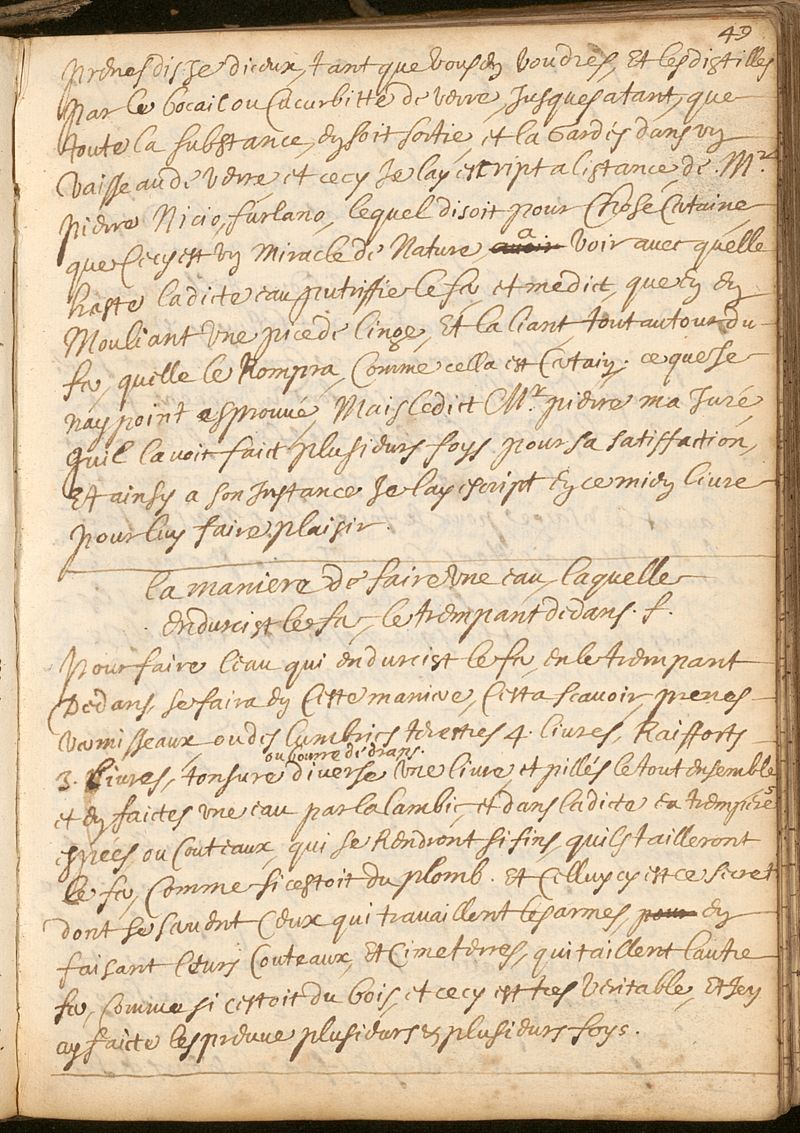 49
prenes disse dieux, tant que vous en voudres, Et les distilles
par le bocail ou Cucurbitte de verre, Jusques a tant, que
toute la substance, en soit sortie, et la Gardés dans un
vaisseau de verre et cecy Je lay escript a listance, de Mr.
pierre Nicio, furlano, lequel disoit pour Chose Certaine
que Cecy est un Miracle de Nature, a voir avec quelle
haste ladicte eau putriffie le fer, et me dict, que en en
Mouliant une piece de linge, Et la liant, tout autour du
fer, quelle le Rompra, Comme cella est Certain. ce que Je
nay point esprouvé, Mais ledict Mr. pierre ma Juré
quil lavoit faict plusieurs foys pour sa satisfaction,
Et ainsy a son Instance Je lay escript en ce mien livre
pour luy faire plaisir.
la maniere de faire une eau, laquelle
endurcist le fer, le trempant dedans. f.
Pour faire leau qui endurcist le fer, en le trempant
Dedans se faira en Ceste maniere, Cest a scavoir, prenes
vermisseaux ou des Lumbrics terestres 4. livres, Raifforts
ou bourre de drans.
3. Livres, tonsure diverse une livre, et pillés le tout ensemble
et en faictes une eau par lalambic, et dans ladicte ea tremperes
espees, ou Couteaux, qui se Rendront si fins, quils tailleront
le fer, Comme si cestoit du plomb. Et Celluy cy est ce secret
dont se savent Ceux qui travaillent les armes, pour en
faisant leurs Couteaux, Et Cimeterres, qui taillent lautre
fer, Comme si cestoit du bois, et cecy est tres veritable, Et Jen
ay faicte lespreuve plusieurs & plusieurs foys.